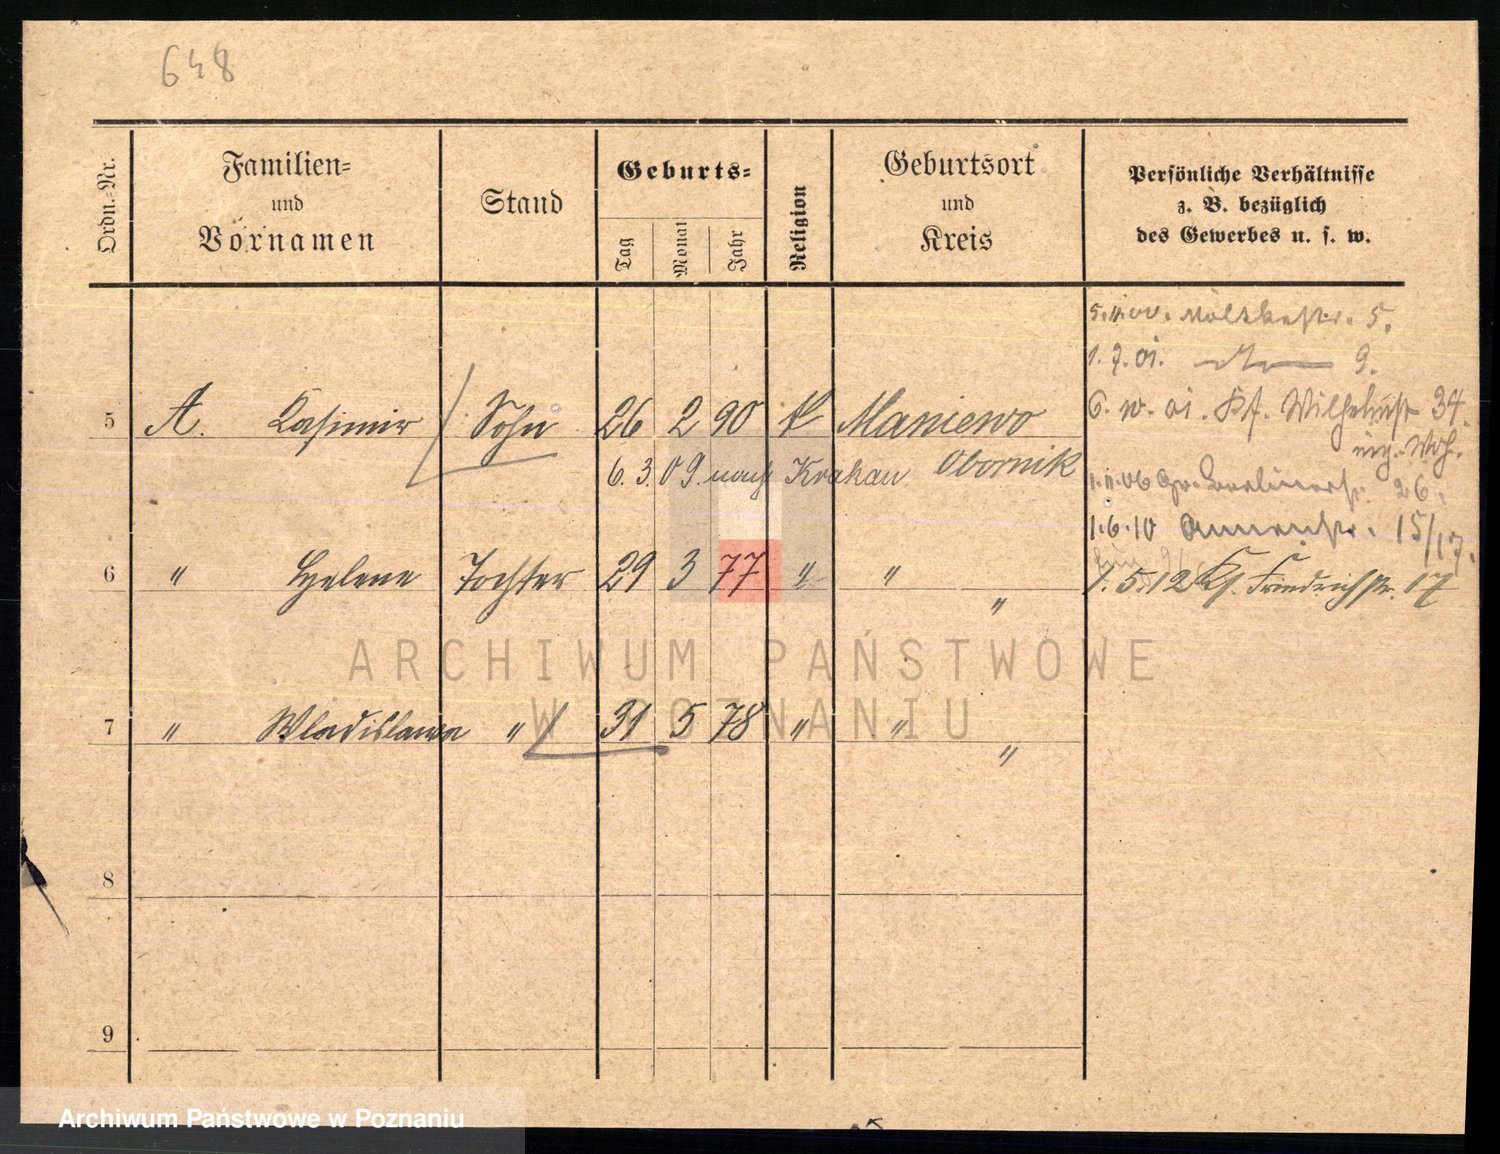 648
Ordn.-Nr.
Familien-
und
Vornamen
Stand
Geburts-
Tag
Monat
Jahr
Religion
Geburtsort
und
Kreis
Persönliche Verhältnisse
z. B. bezüglich
des Gewerbes u. s. w.
5.11.00. Moltkestr. 5.
1.7.01. 9.
5 A. Kasimir Sohn 26 2 90 K Maniewo
Obornik
6. 3. 09 nach Krakau
6. 10. 01. Kf. Wilhelmstr 34
1.11.06 Gr. Berlinerstr. 26.
1.6.10 Annenstr. 15/17.
1.5.12 Kf. Friedrichstr. 17
6 " Helene Tochter 29 3 77 " "
"
7 " Wladislawa " 31 5 78 " "
"
8
9
ARCHIWUM PAŃSTWOWE
W POZNANIU
Archiwum Państwowe w Poznaniu